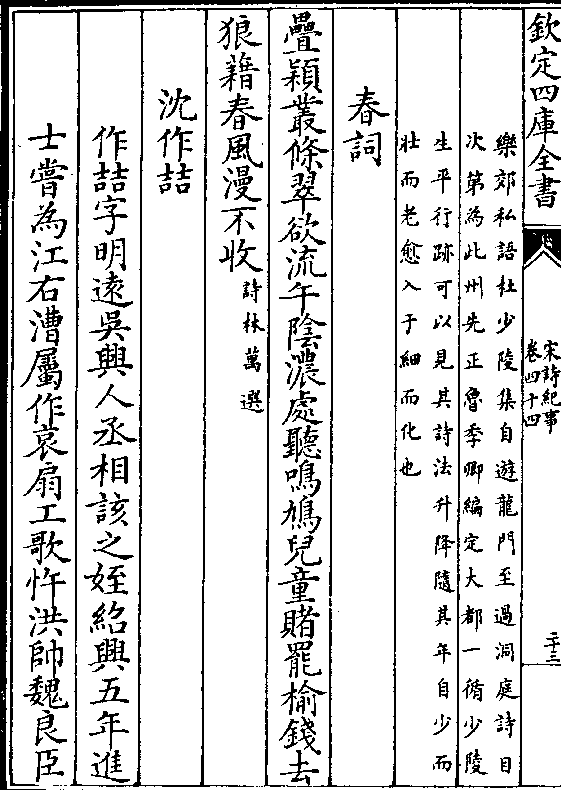 欽定四庫全書
宋詩紀事
卷四十四
二十三
樂郊私語杜少陵集自遊龍門至過洞庭詩目
次第為此州先正魯季卿編定大都一循少陵
生平行跡可以見其詩法升降隨其年自少而
壯而老愈入于細而化也
春詞
疊穎叢條翠欲流午陰濃處聽鳴鳩兒童賭罷榆錢去
狼藉春風漫不收詩林萬選
沈作喆
作喆字明遠吳興人丞相該之姪紹興五年進
士嘗為江右漕屬作哀扇工歌忤洪帥魏良臣